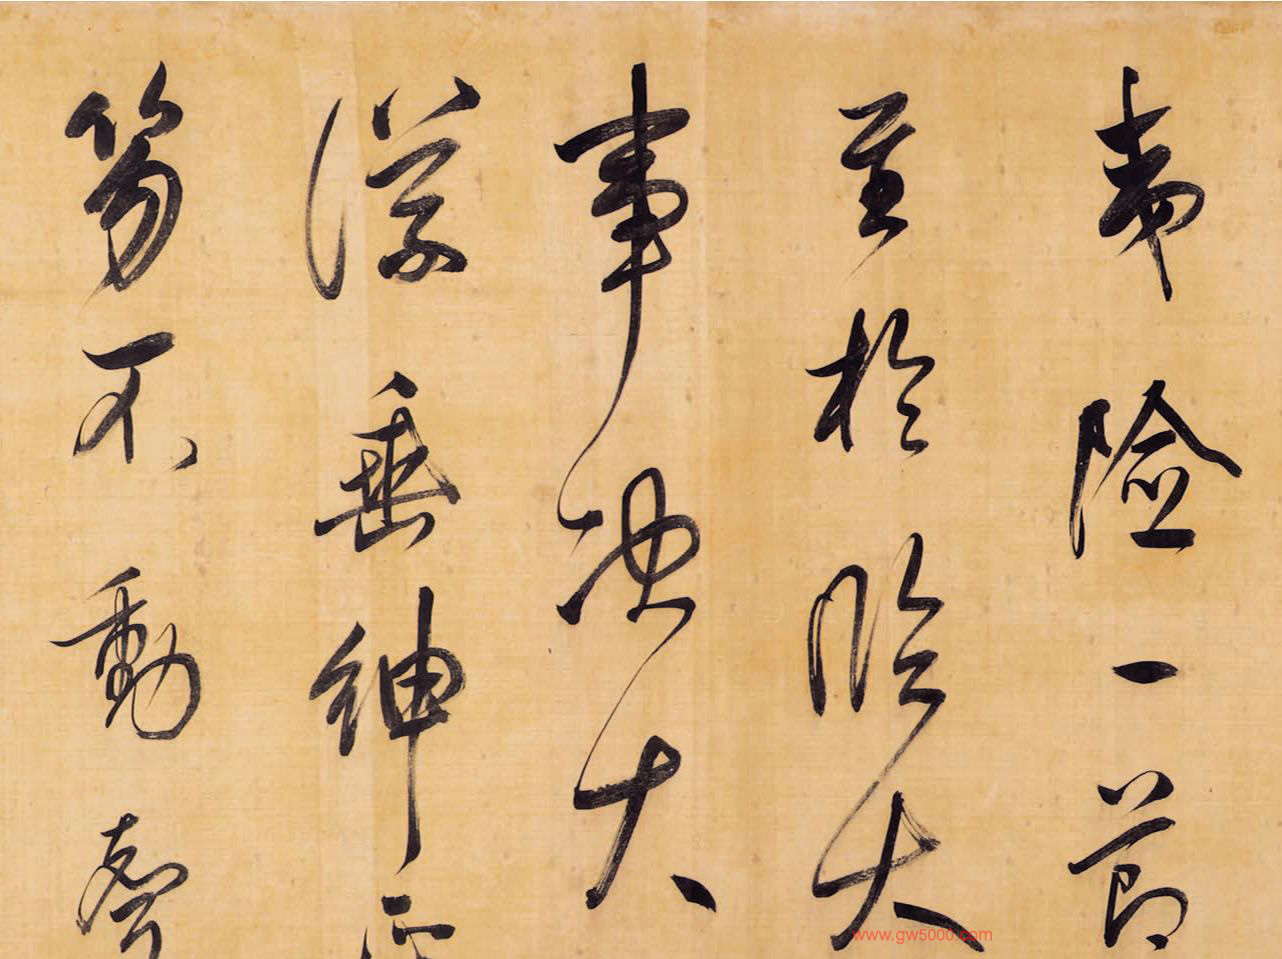 夷險一節
至於臨大
事決大
議垂紳正
笏不動聲
www.gw5000.com